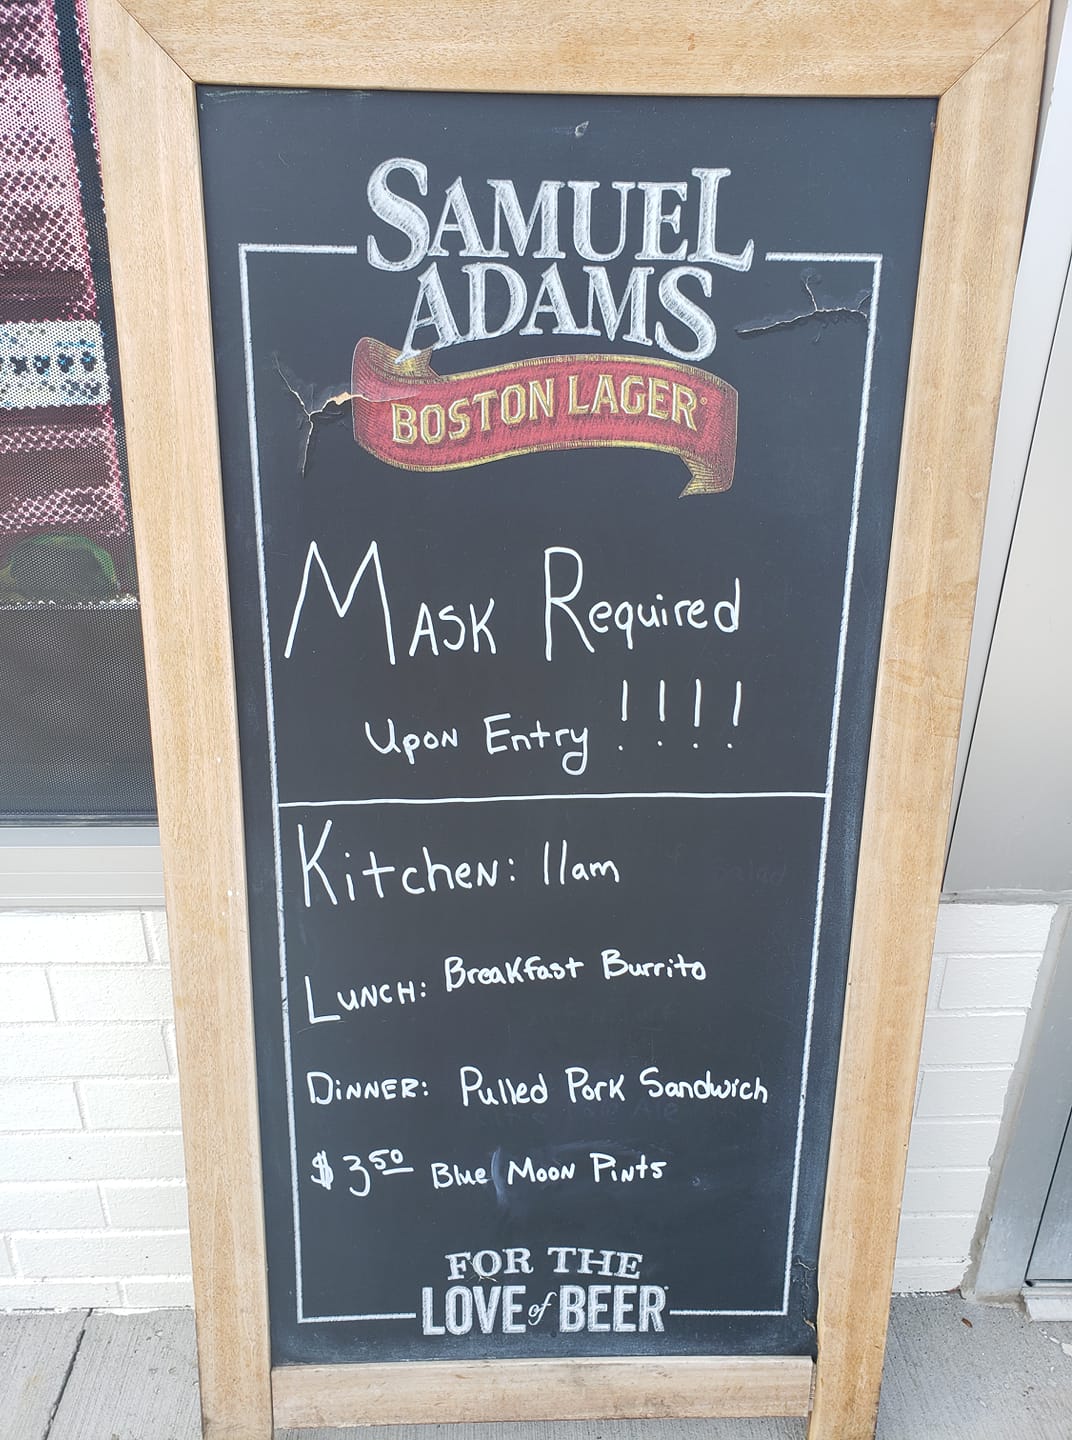 SAMUEL
ADAMS
BOSTON LAGER
MASK Required
Upon Entry !!!!
Kitchen: 11am
LUNCH: Breakfast Burrito
DINNER: Pulled Pork Sandwich
$3.50 Blue Moon Pints
FOR THE
LOVE of BEER